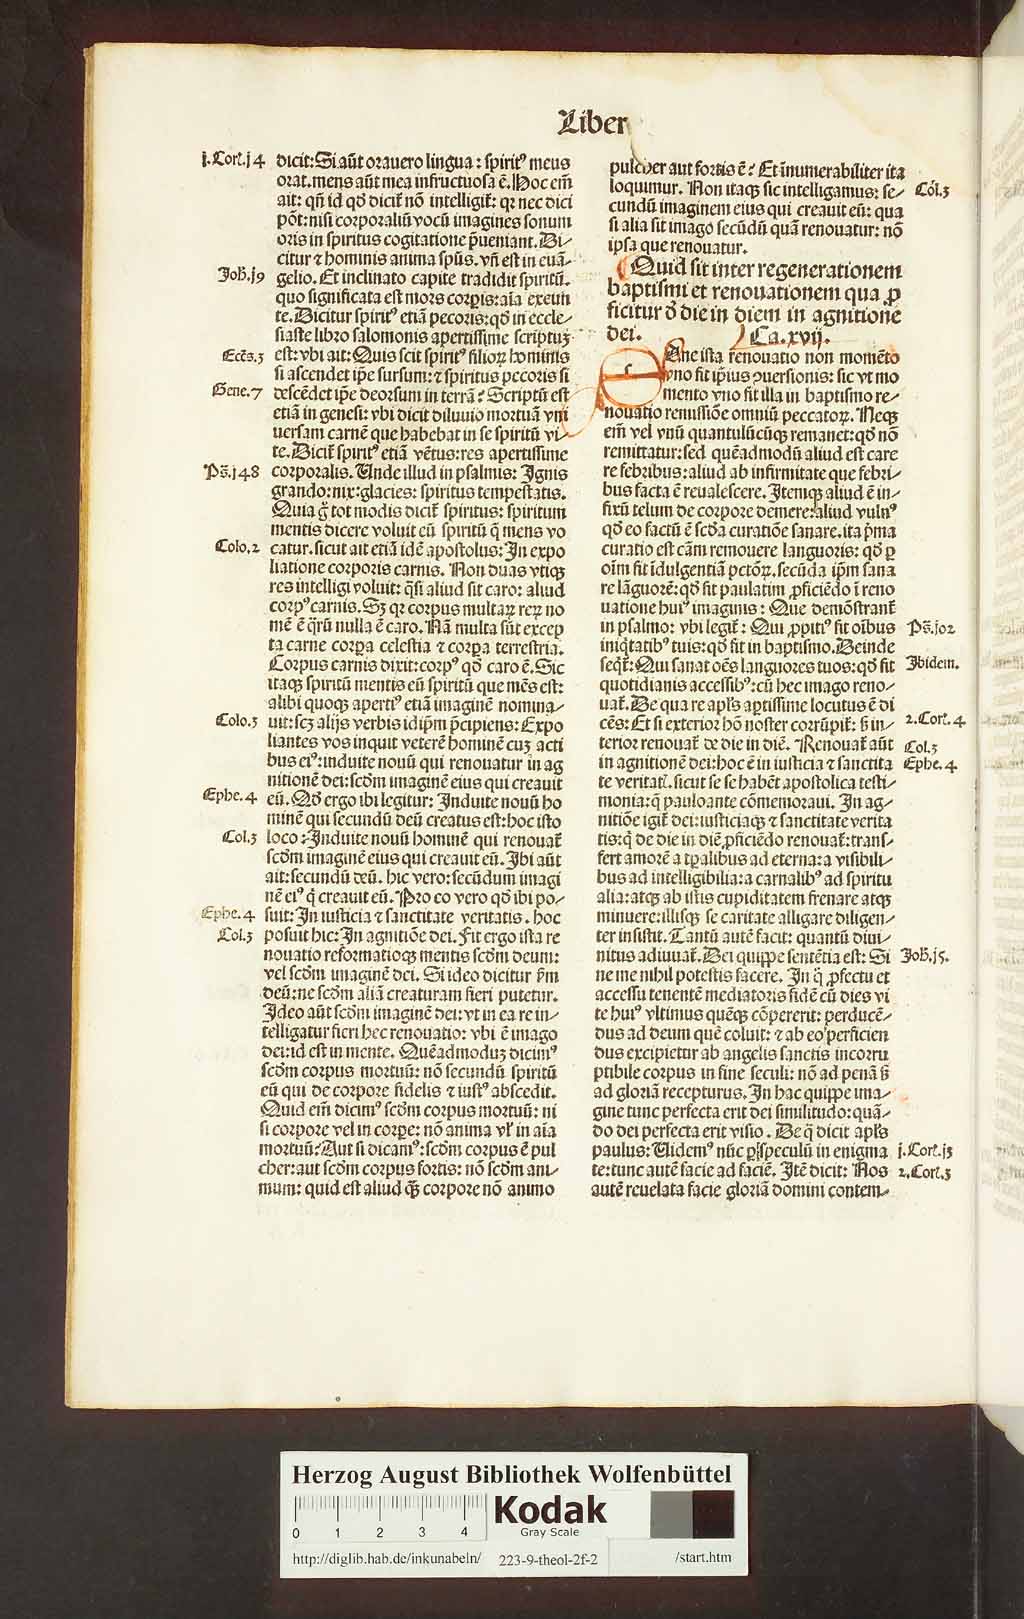 Liber
j.Corī.j4
dicit:Si aūt orauero lingua: spiritꝰ meus
orat.mens aūt mea infructuosa ē.Hoc em̄
ait: qn̄ id qď dicit̄ nō intelligit̄: qꝛ nec dici
pōt: nisi corporaliū vocū imagines sonum
oris in spiritus cogitatione p̄ueniant. Di⸗
citur ⁊ hominis anima spūs. vn̄ est in euā⸗
Joh̄.j9
gelio. Et inclinato capite tradidit spiritū.
quo significata est mors corꝑis: aīa exeun
te. Dicitur spiritꝰ etiā pecoris: qď in eccle⸗
siaste libro salomonis apertissime scriptuꝫ
Eccs̄.3
est: vbi ait: Quis scit spiritꝰ filioꝝ hominis
si ascendet ip̄e sursum: ⁊ spiritus pecoris si
Gene.7
descēdet ip̄e deorsum in terrā? Scriptū est
etiā in genesi: vbi dicit diluuio mortuā vni
uersam carnē que habebat in se spiritū vi⸗
te. Dicit̄ spiritꝰ etiā vētus: res apertissime
Ps̄.j48
corporalis. Unde illud in psalmis: Ignis
grando: nix: glacies: spiritus tempestatis.
Quia g̊ tot modis dicit̄ spiritus: spiritum
mentis dicere voluit eū spiritū q̄ mens vo
Colo.2
catur. sicut ait etiā idē apostolus: In expo
liatione corporis carnis. Non duas vtiqꝫ
res intelligi voluit: q̄si aliud sit caro: aliud
corpꝰ carnis. Sꝫ qꝛ corpus multaꝝ reꝝ no
mē ē q̄rū nulla ē caro. Nā multa sūt excep
ta carne corꝑa celestia ⁊ corꝑa terrestria.
Corpus carnis dixit: corpꝰ qď caro ē. Sic
itaqꝫ spiritū mentis eū spiritū que mēs est:
alibi quoqꝫ apertiꝰ etiā imaginē nomina⸗
Colo.3
uit: scꝫ alijs verbis idip̄m p̄cipiens: Expo
liantes vos inquit veterē hominē cuꝫ acti
bus eiꝰ: induite nouū qui renouatur in ag
nitionē dei: scďm imaginē eius qui creauit
Ephe.4
eū. Qď ergo ibi legitur: Induite nouū ho
minē qui secundū deū creatus est: hoc isto
Col.3
loco: Induite nouū hominē qui renouat̄
scďm imaginē eius qui creauit eū. Ibi aūt
ait: secundū deū. hic vero: secūdum imagi
nē eiꝰ q̇ creauit eū. Pro eo vero qď ibi po⸗
Ephe.4
suit: In iusticia ⁊ sanctitate veritatis. hoc
Col.3
posuit hic: In agnitiōe dei. Fit ergo ista re
nouatio reformatioqꝫ mentis scďm deum:
vel scďm imaginē dei. Si ideo dicitur p̄m
deū: ne scďm aliā creaturam fieri putetur.
Ideo aūt scďm imaginē dei: vt in ea re in⸗
telligatur fieri hec renouatio: vbi ē imago
dei: id est in mente. Quēadmoduꝫ dicimꝰ
scďm corpus mortuū: nō secundū spiritū
eū qui de corpore fidelis ⁊ iustꝰ abscedit.
Quid em̄ dicimꝰ scďm corpus mortuū: ni
si corpore vel in corpe: nō anima vl̄ in aīa
mortuū? Aut si dicamꝰ: scďm corpus ē pul
cher: aut scďm corpus fortis: nō scďm ani⸗
mum: quid est aliud q̄ꝫ corpore nō animo
pulcher aut fortis ē? Et īnumerabiliter ita
loquimur. Non itaqꝫ sic intelligamus: se⸗
Col.3
cundū imaginem eius qui creauit eū: qua
si alia sit imago secūdū quā renouatur: nō
ipsa que renouatur.
Quid sit inter regenerationem
baptismi et renouationem qua ꝓ
ficitur ď die in diem in agnitione
dei. Ca.xvij.
Ane ista renouatio non momēto
vno fit ip̄ius ꝯuersionis: sic vt mo
mento vno fit illa in baptismo re⸗
nouatio remissiōe omniū peccatoꝝ. Neqꝫ
em̄ vel vnū quantulūcūqꝫ remanet: qď nō
remittatur: sed quēadmodū aliud est care
re febribus: aliud ab infirmitate que febri⸗
bus facta ē reualescere. Itemqꝫ aliud ē in⸗
fixū telum de corpore demere: aliud vulnꝰ
qď eo factū ē scďa curatiōe sanare. ita p̄ma
curatio est cām remouere languoris: qď ꝑ
oīm fit īdulgentiā pctōꝝ. secūda ip̄m sana
re lāguorē: qď fit paulatim ꝓficiēdo ī reno
uatione huiꝰ imaginis: Que demōstrant̄
in psalmo: vbi legit̄: Qui ꝓpitiꝰ fit oībus
Ps̄.jo2
iniq̇tatibꝰ tuis: qď fit in baptismo. Deinde
seqt̄: Qui sanat oēs languores tuos: qď fit
Ibidem.
quotidianis accessibꝰ: cū hec imago reno⸗
uat̄. De qua re apl̄s aptissime locutus ē di
cēs: Et si exterior hō noster corrūpit̄: s̄ in⸗
2.Corī.4
terior renouat̄ de die in diē. Renouat̄ aūt
Col.3
in agnitionē dei: hoc ē in iusticia ⁊ sanctita
Ephe.4
te veritatꝭ. sicut se se habēt apostolica testi⸗
monia: q̄ pauloante cōmemoraui. In ag⸗
nitiōe igit̄ dei: iusticiaqꝫ ⁊ sanctitate verita
tis: q̇ de die in diē ꝓficiēdo renouat̄: trans⸗
fert amorē a tꝑalibus ad eterna: a visibili⸗
bus ad intelligibilia: a carnalibꝰ ad spiritu
alia: atqꝫ ab istis cupiditatem frenare atqꝫ
minuere: illisqꝫ se caritate alligare diligen⸗
ter insistit. Tantū autē facit: quantū diui⸗
nitus adiuuat̄. Dei quippe sentētia est: Si
Joh̄.j5.
ne me nihil potestis facere. In q̇ ꝓfectu et
accessu tenentē mediatoris fidē cū dies vi
te huiꝰ vltimus quēqꝫ cōpererit: perducē⸗
dus ad deum quē coluit: ⁊ ab eo perficien
dus excipietur ab angelis sanctis incorru
ptibile corpus in fine seculi: nō ad penā s̄
ad gloriā recepturus. In hac quippe ima⸗
gine tunc perfecta erit dei similitudo: quā⸗
do dei perfecta erit visio. De q̇ dicit apl̄s
paulus: Uidemꝰ nūc ꝑ speculū in enigma
j.Corī.j3
te: tunc autē facie ad faciē. Itē dicit: Nos
2.Corī.3
autē reuelata facie gloriā domini contem⸗
Herzog August Bibliothek Wolfenbüttel
0 1 2 3 4
Kodak
Gray Scale
http://diglib.hab.de/inkunabeln/ 223-9-theol-2f-2 /start.htm